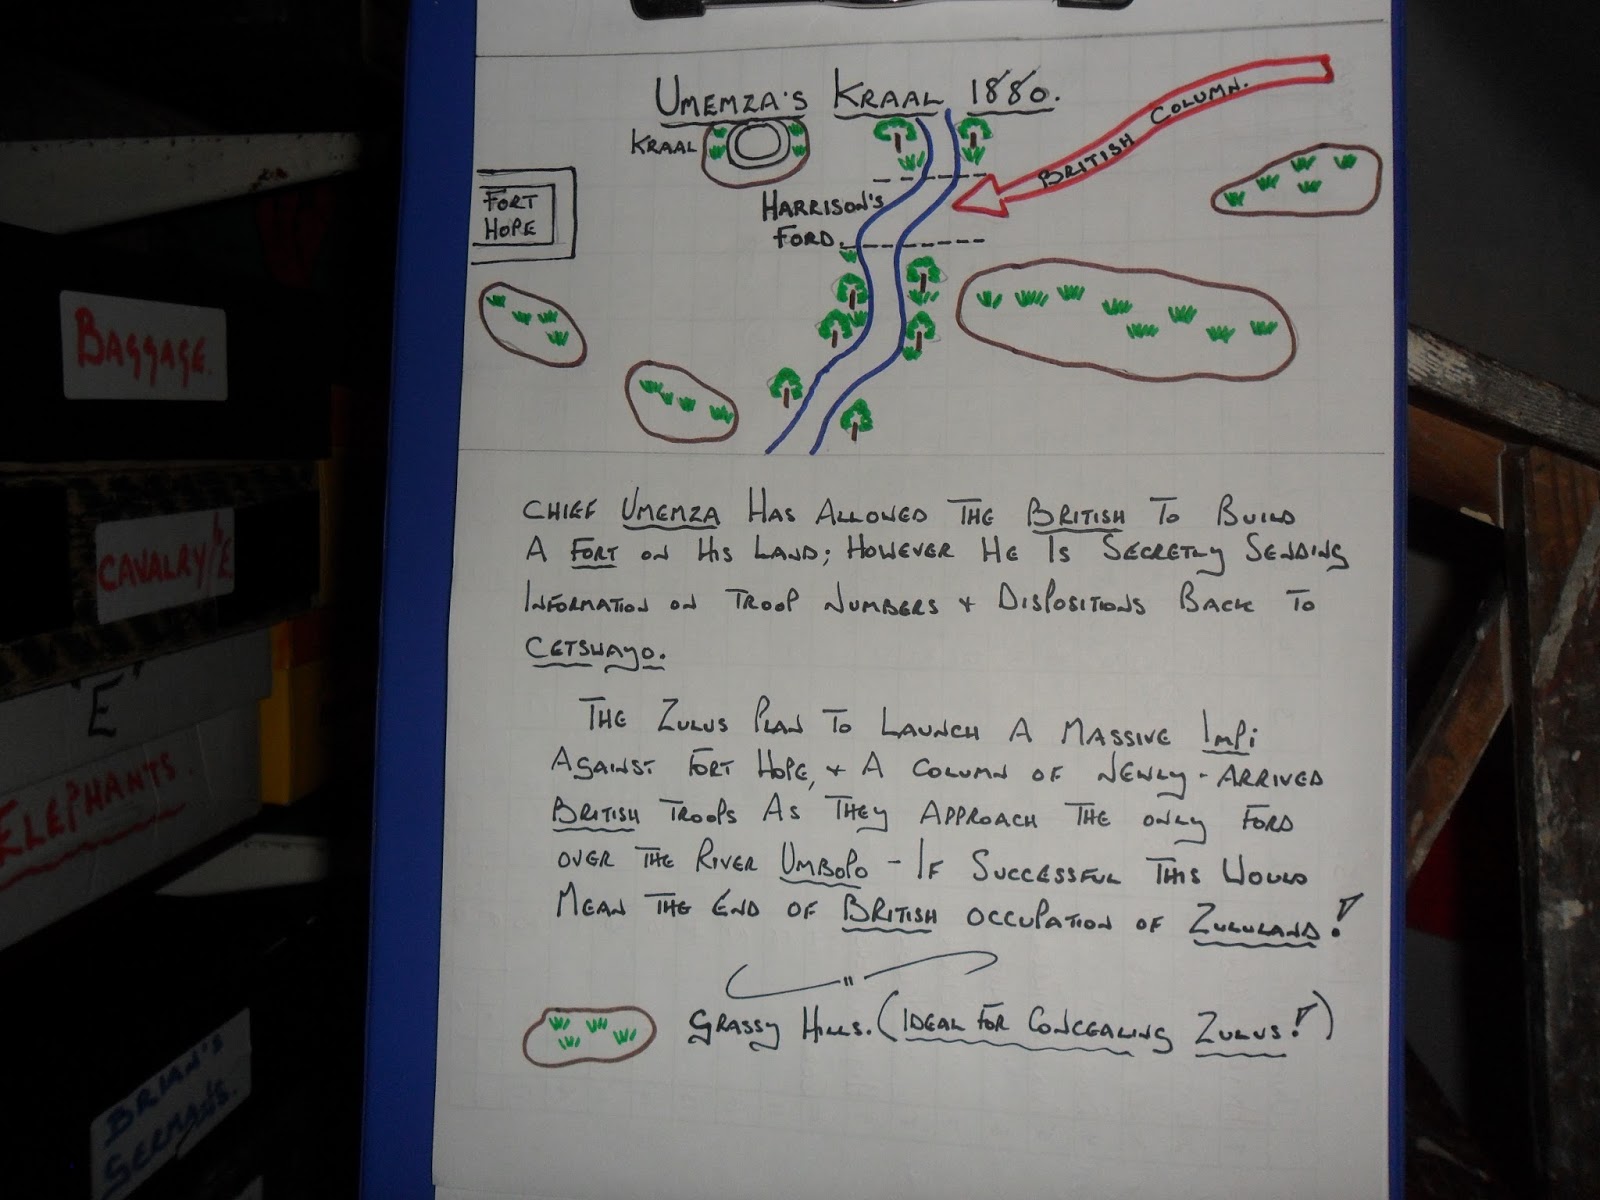 UMEMZA'S KRAAL 1880.
KRAAL
BRITISH COLUMN.
FORT
HOPE
HARRISON'S
FORD.
CHIEF UMEMZA HAS ALLOWED THE BRITISH TO BUILD
A FORT ON HIS LAND; HOWEVER HE IS SECRETLY SENDING
INFORMATION ON TROOP NUMBERS + DISPOSITIONS BACK TO
CETSWAYO.
THE ZULUS PLAN TO LAUNCH A MASSIVE IMPI
AGAINST FORT HOPE, + A COLUMN OF NEWLY-ARRIVED
BRITISH TROOPS AS THEY APPROACH THE ONLY FORD
OVER THE RIVER UMBOPO - IF SUCCESSFUL THIS WOULD
MEAN THE END OF BRITISH OCCUPATION OF ZULULAND!
GRASSY HILLS. (IDEAL FOR CONCEALING ZULUS!)
BAGGAGE.
CAVALRY/'E'
"E"
ELEPHANTS.
BRIAN'S
GERMANS.